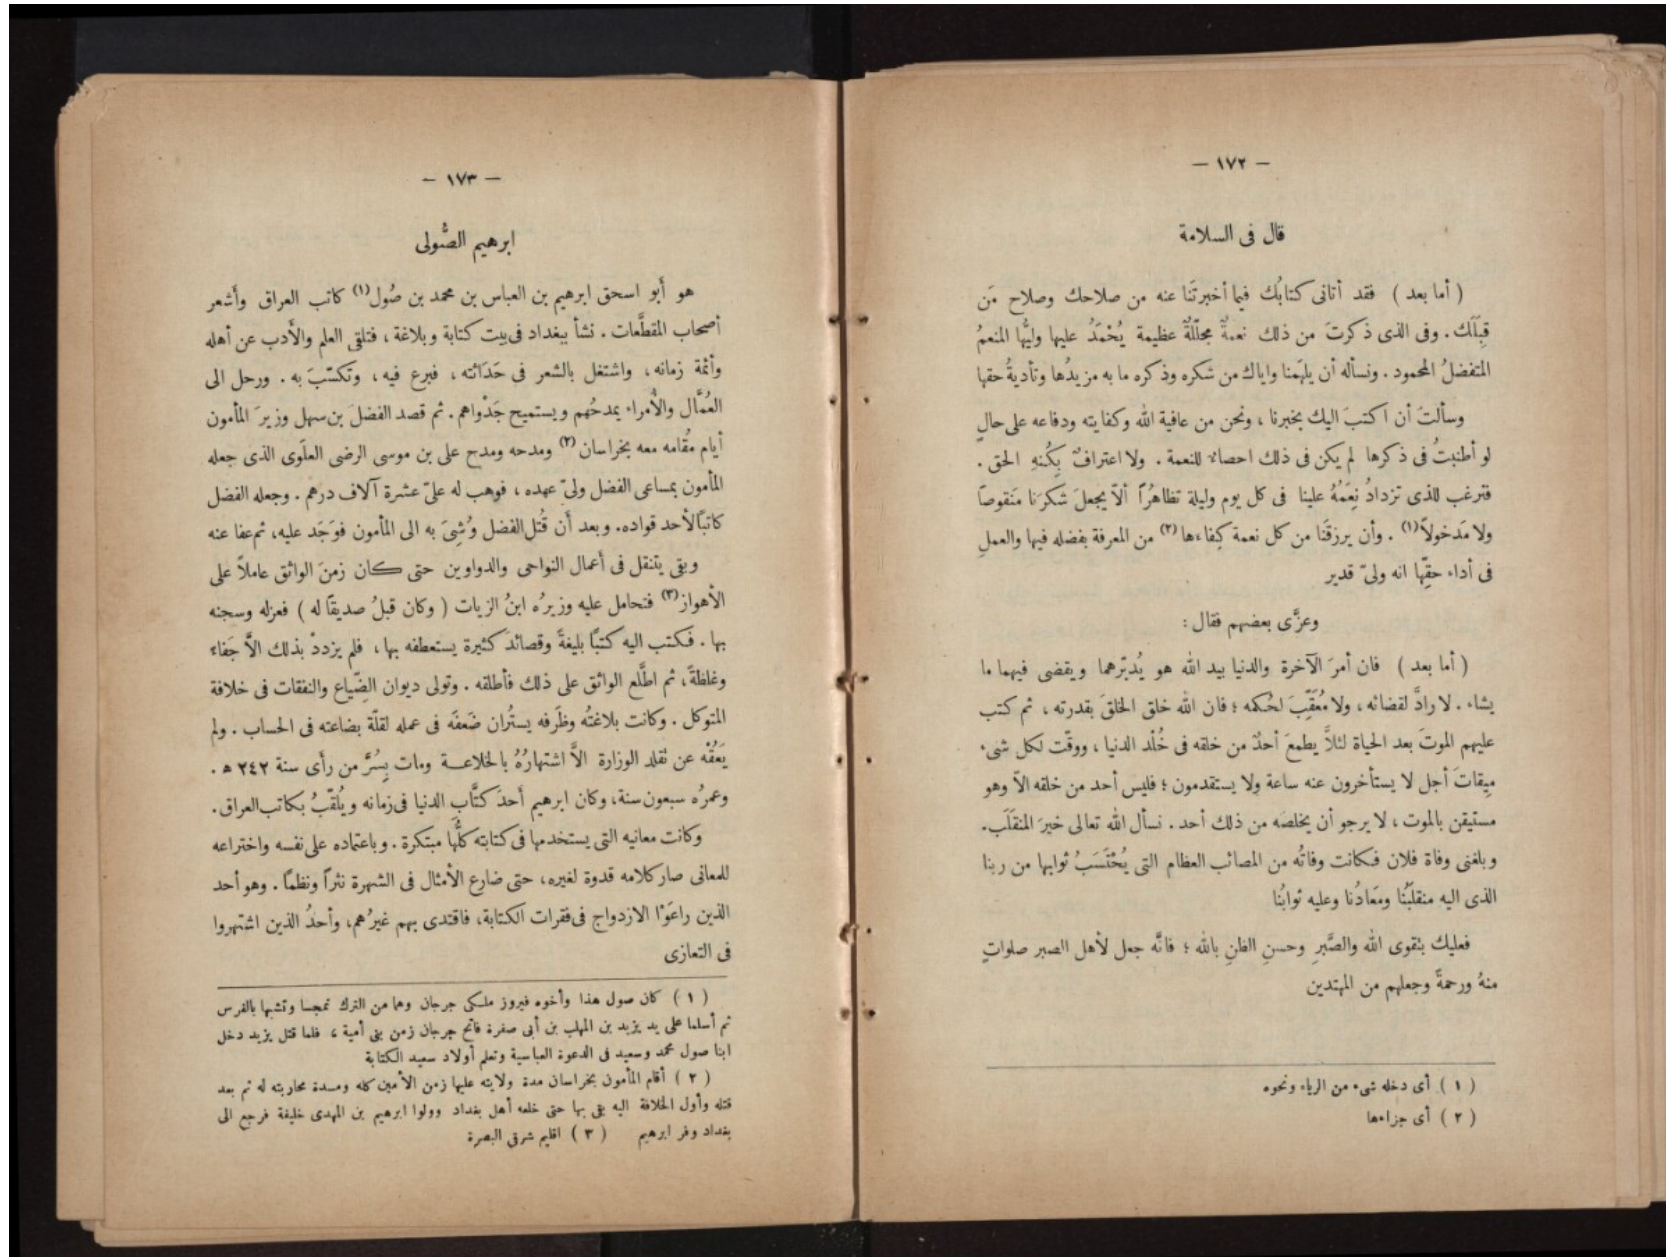 — ١٧٢ —
قال فى السلامة
( أما بعد ) فقد أتانى كتابُك فيما أخبرتَنا عنه من صلاحك وصلاح مَن
قِبَلَك . وفى الذى ذكرتَ من ذلك نعمةٌ مجلّلةٌ عظيمة يُحْمَدُ عليها وليُّها المنعمُ
المتفضلُ المحمود . ونسأله أن يلهَمنا واياك من شكره وذكره ما به مزيدُها وتأديةُ حقها
وسألتَ أن اكتبَ اليك بخبرنا ، ونحن من عافية الله وكفايته ودفاعه على حالٍ
لو أطنبتُ فى ذكرها لم يكن فى ذلك احصاءٌ للنعمة . ولا اعترافٌ بِكُنهِ الحق .
فنرغب للذى تزدادُ نِعَمُهُ علينا فى كل يوم وليلة تظاهُرًا ألاّ يجعلَ شكرَنا مَنقوصاً
ولا مَدخولاً (١) . وأن يرزقَنا من كل نعمة كِفاءَها (٢) من المعرفة بفضله فيها والعملِ
فى أداء حقِّها انه ولىّ قدير
وعزَّى بعضهم فقال :
( أما بعد ) فان أمرَ الآخرة والدنيا بيد الله هو يُدبّرهما ويقضى فيهما ما
يشاء . لا رادَّ لقضائه ، ولا مُعَقِّبَ لحُكمه ؛ فان الله خلق الخلقَ بقدرته ، ثم كتب
عليهم الموتَ بعد الحياة لئلاَّ يطمعَ أحدٌ من خلقه فى خُلْد الدنيا ، ووقّت لكل شىء
مِيقاتَ أجل لا يستأخرون عنه ساعة ولا يستقدمون ؛ فليس أحد من خلقه الاّ وهو
مستيقن بالموت ، لا يرجو أن يخلصَه من ذلك أحد . نسأل الله تعالى خيرَ المنقلَب.
وبلغنى وفاة فلان فكانت وفاتُه من المصائب العظام التى يُحْتَسَبُ ثوابها من ربنا
الذى اليه منقلَبُنا ومَعادُنا وعليه ثوابُنا
فعليك بتقوى الله والصَّبرِ وحسنِ الظنِ بالله ؛ فانَّه جعل لأهل الصبر صلواتٍ
منهُ ورحمةً وجعلهم من المهتدين
( ١ ) أى دخله شىء من الرياء ونحوه
( ٢ ) أى جزاءها
— ١٧٣ —
ابرهيم الصُّولى
هو أبو اسحق ابرهيم بن العباس بن محمد بن صُول (١) كاتب العراق وأشعر
أصحاب المقطَّعات . نشأ ببغداد فى بيت كتابة وبلاغة ، فتلقى العلم والأدب عن أهله
وأئمة زمانه ، واشتغل بالشعر فى حَدَاثته ، فبرع فيه ، وتكسّبَ به . ورحل الى
العُمَّال والأمراء يمدحُهم ويستميح جَدْواهم . ثم قصد الفضلَ بن سهل وزيرَ المأمون
أيام مقُامه معه بخراسان (٢) ومدحه ومدح على بن موسى الرضى العلَوى الذى جعله
المأمون بمساعى الفضل ولىّ عهده ، فوهب له علىّ عشرة آلاف درهم . وجعله الفضل
كاتبًا لأحد قواده. وبعد أن قُتل الفضل وُشِىَ به الى المأمون فوَجَد عليه، ثم عفا عنه
وبقى يتنقل فى أعمال النواحى والدواوين حتى كان زمنَ الواثق عاملاً على
الأهواز (٣) فتحامل عليه وزيرُه ابنُ الزيات ( وكان قبلُ صديقًا له ) فعزله وسجنه
بها . فكتب اليه كتبًا بليغةً وقصائدَ كثيرة يستعطفه بها ، فلم يزددْ بذلك الاَّ جَفاء
وغلظةً ، ثم اطَّلع الواثق على ذلك فأطلقه . وتولى ديوان الضِّياع والنفقات فى خلافة
المتوكل . وكانت بلاغتُه وظَرفه يستُران ضَعفَه فى عمله لقلّة بضاعته فى الحساب . ولم
يَعُقْه عن تقلد الوزارة الاَّ اشتهارُهُ بالخلاعة ومات بِسُرَّ من رأى سنة ٢٤٢ ه .
وعمرُه سبعون سنة، وكان ابرهيم أحدَ كتَّابِ الدنيا فى زمانه ويُلقّبُ بكاتب العراق.
وكانت معانيه التى يستخدمها فى كتابته كلُّها مبتكرة . وباعتماده على نفسه واختراعه
للمعانى صار كلامه قدوة لغيره، حتى ضارع الأمثال فى الشهرة نثراً ونظماً . وهو أحد
الذين راعَوْا الازدواج فى فقرات الكتابة، فاقتدى بهم غيرُهم، وأحدُ الذين اشتهروا
فى التعازى
( ١ ) كان صول هذا وأخوه فيروز ملكى جرجان وهما من الترك تمجسا وتشبها بالفرس
ثم أسلما على يد يزيد بن المهلب بن أبى صفرة فاتح جرجان زمن بنى أمية ، فلما قتل يزيد دخل
ابنا صول محمد وسعيد فى الدعوة العباسية وتعلم أولاد سعيد الكتابة
( ٢ ) أقام المأمون بخراسان مدة ولايته عليها زمن الأمين كله ومدة محاربته له ثم بعد
قتله وأول الخلافة اليه بقى بها حتى خلعه أهل بغداد وولوا ابرهيم بن المهدى خليفة فرجع الى
بغداد وفر ابرهيم ( ٣ ) اقليم شرقى البصرة